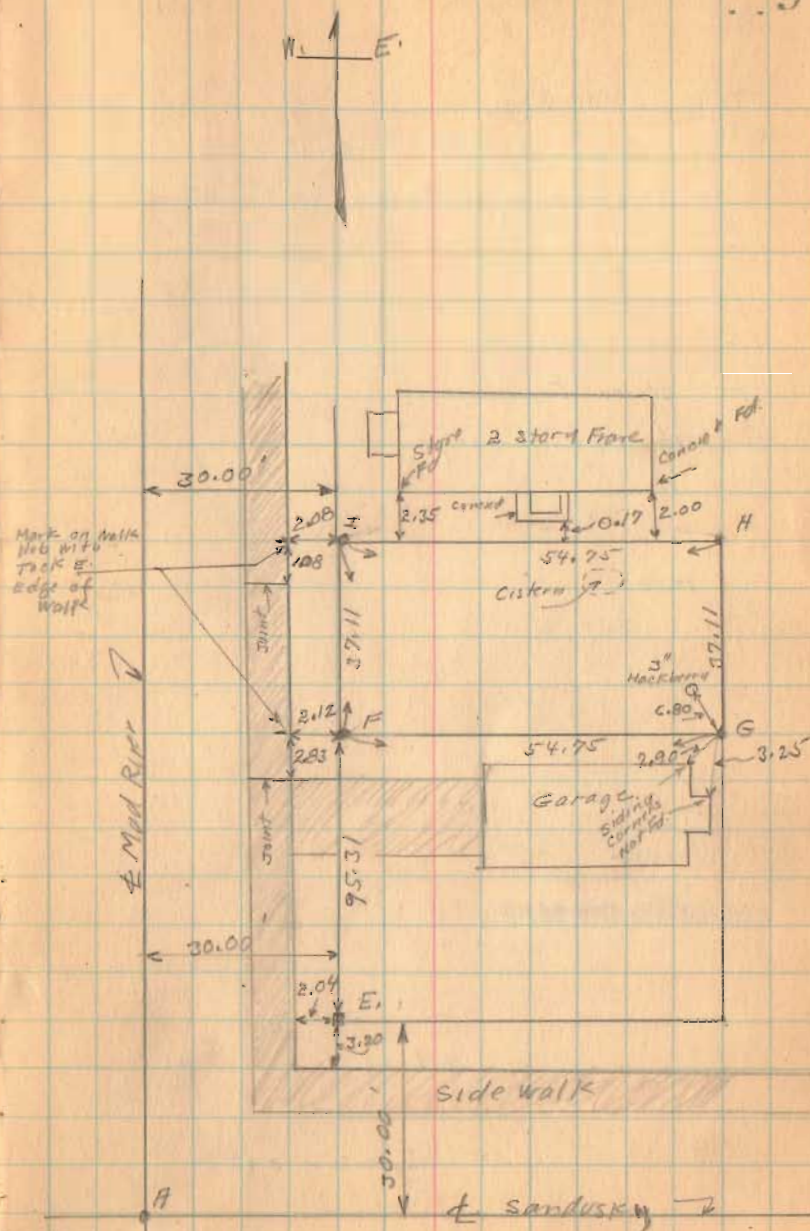 W. E.
2 Story Frame
Stone
Fd
Fd.
30.00'
2.35
0.17
2.00
2.08
I
H
Mark on Walk
Hub with
Tack E.
Edge of
Walk
1.08
54.75
Cistern
Joint
37.11
37.11
3"
Hackberry
6.80
2.12
F
G
2.83
54.75
2.90
3.25
Garage
Siding
Corners
Not Fd.
℄ Mad River
Joint
95.31
30.00
2.04
E.
3.20
Side walk
30.00'
A
℄ Sandusky